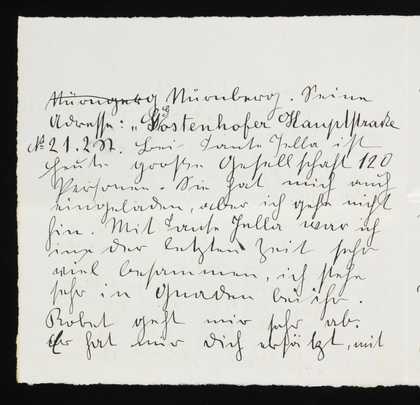 Nürnberg Nürnberg. Seine
Adresse: „Gostenhofer Hauptstraße
No 21. 2 St. Bei Tante Jella ist
heute große Gesellschaft 120
Personen. Sie hat mich auch
eingeladen, aber ich gehe nicht
hin. Mit Tante Jella war ich
in der letzten Zeit sehr
viel beisammen, ich stehe
sehr in Gnaden bei ihr.
Robert geht mir sehr ab.
Er hat mir dich ersetzt, mit